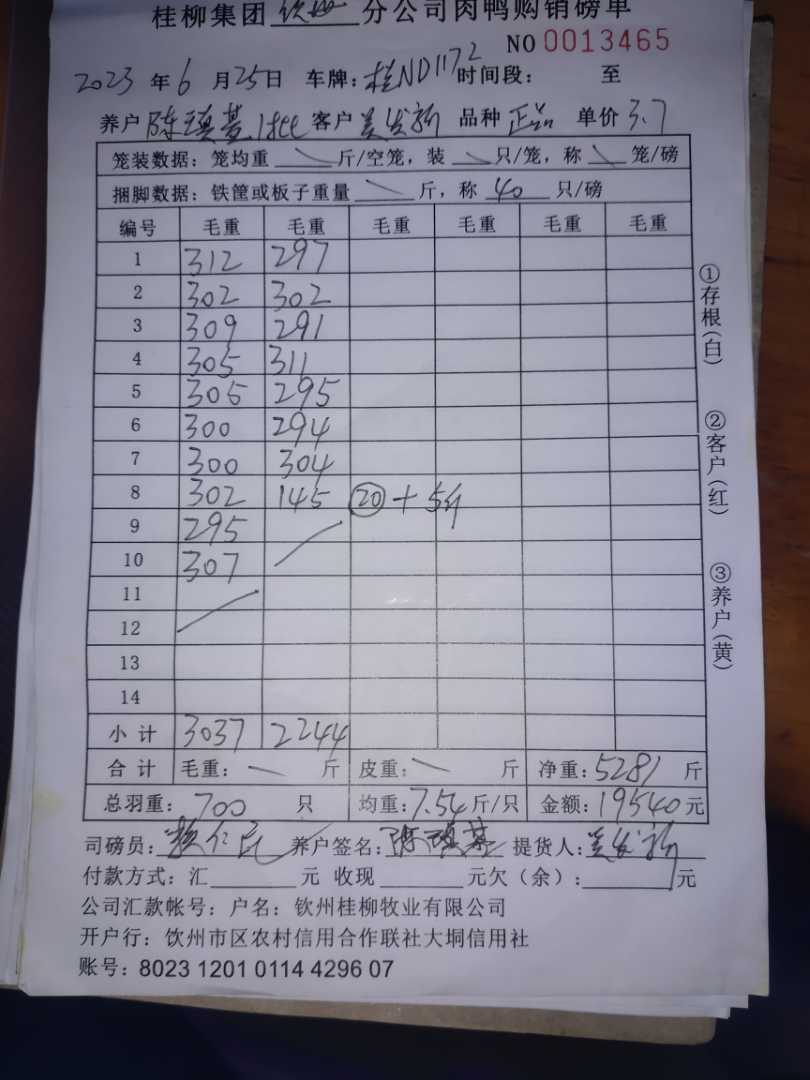 桂柳集团 钦州 分公司肉鸭购销磅单
NO 0013465
2023 年 6 月 25 日 车牌：桂ND1172 时间段： 至
养户 陈琪基 客户 发新 品种 正品 单价 3.7
笼装数据：笼均重 斤/空笼，装 只/笼，称 笼/磅
捆脚数据：铁筐或板子重量 斤，称 40 只/磅
编号 毛重 毛重 毛重 毛重 毛重 毛重
1 312 297
2 302 302
3 309 291
4 305 311
5 305 295
6 300 294
7 300 304
8 302 145 ⑳ + 5斤
9 295
10 307
11
12
13
14
小计 3037 2244
合计 毛重： 斤 皮重： 斤 净重：5281 斤
总羽重：700 只 均重：7.54 斤/只 金额：19540 元
司磅员： 养户签名：陈琪基 提货人：发新
付款方式：汇 元 收现 元欠（余）： 元
公司汇款帐号：户名：钦州桂柳牧业有限公司
开户行：钦州市区农村信用合作联社大垌信用社
账号：8023 1201 0114 4296 07
①存根（白）
②客户（红）
③养户（黄）